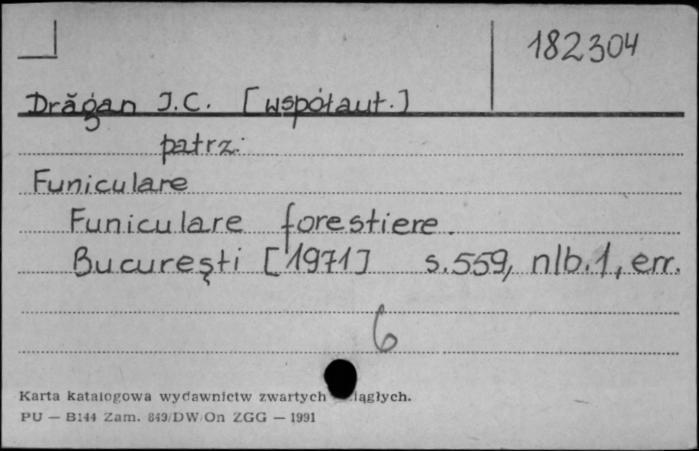 182304
Drăgan I.C. [współaut.]
patrz:
Funiculare
Funiculare forestiere.
Bucureşti [1971] s.559, nlb.1, err.
6
Karta katalogowa wydawnictw zwartych iągłych.
PU — B144 Zam. 849/DW/On ZGG — 1991